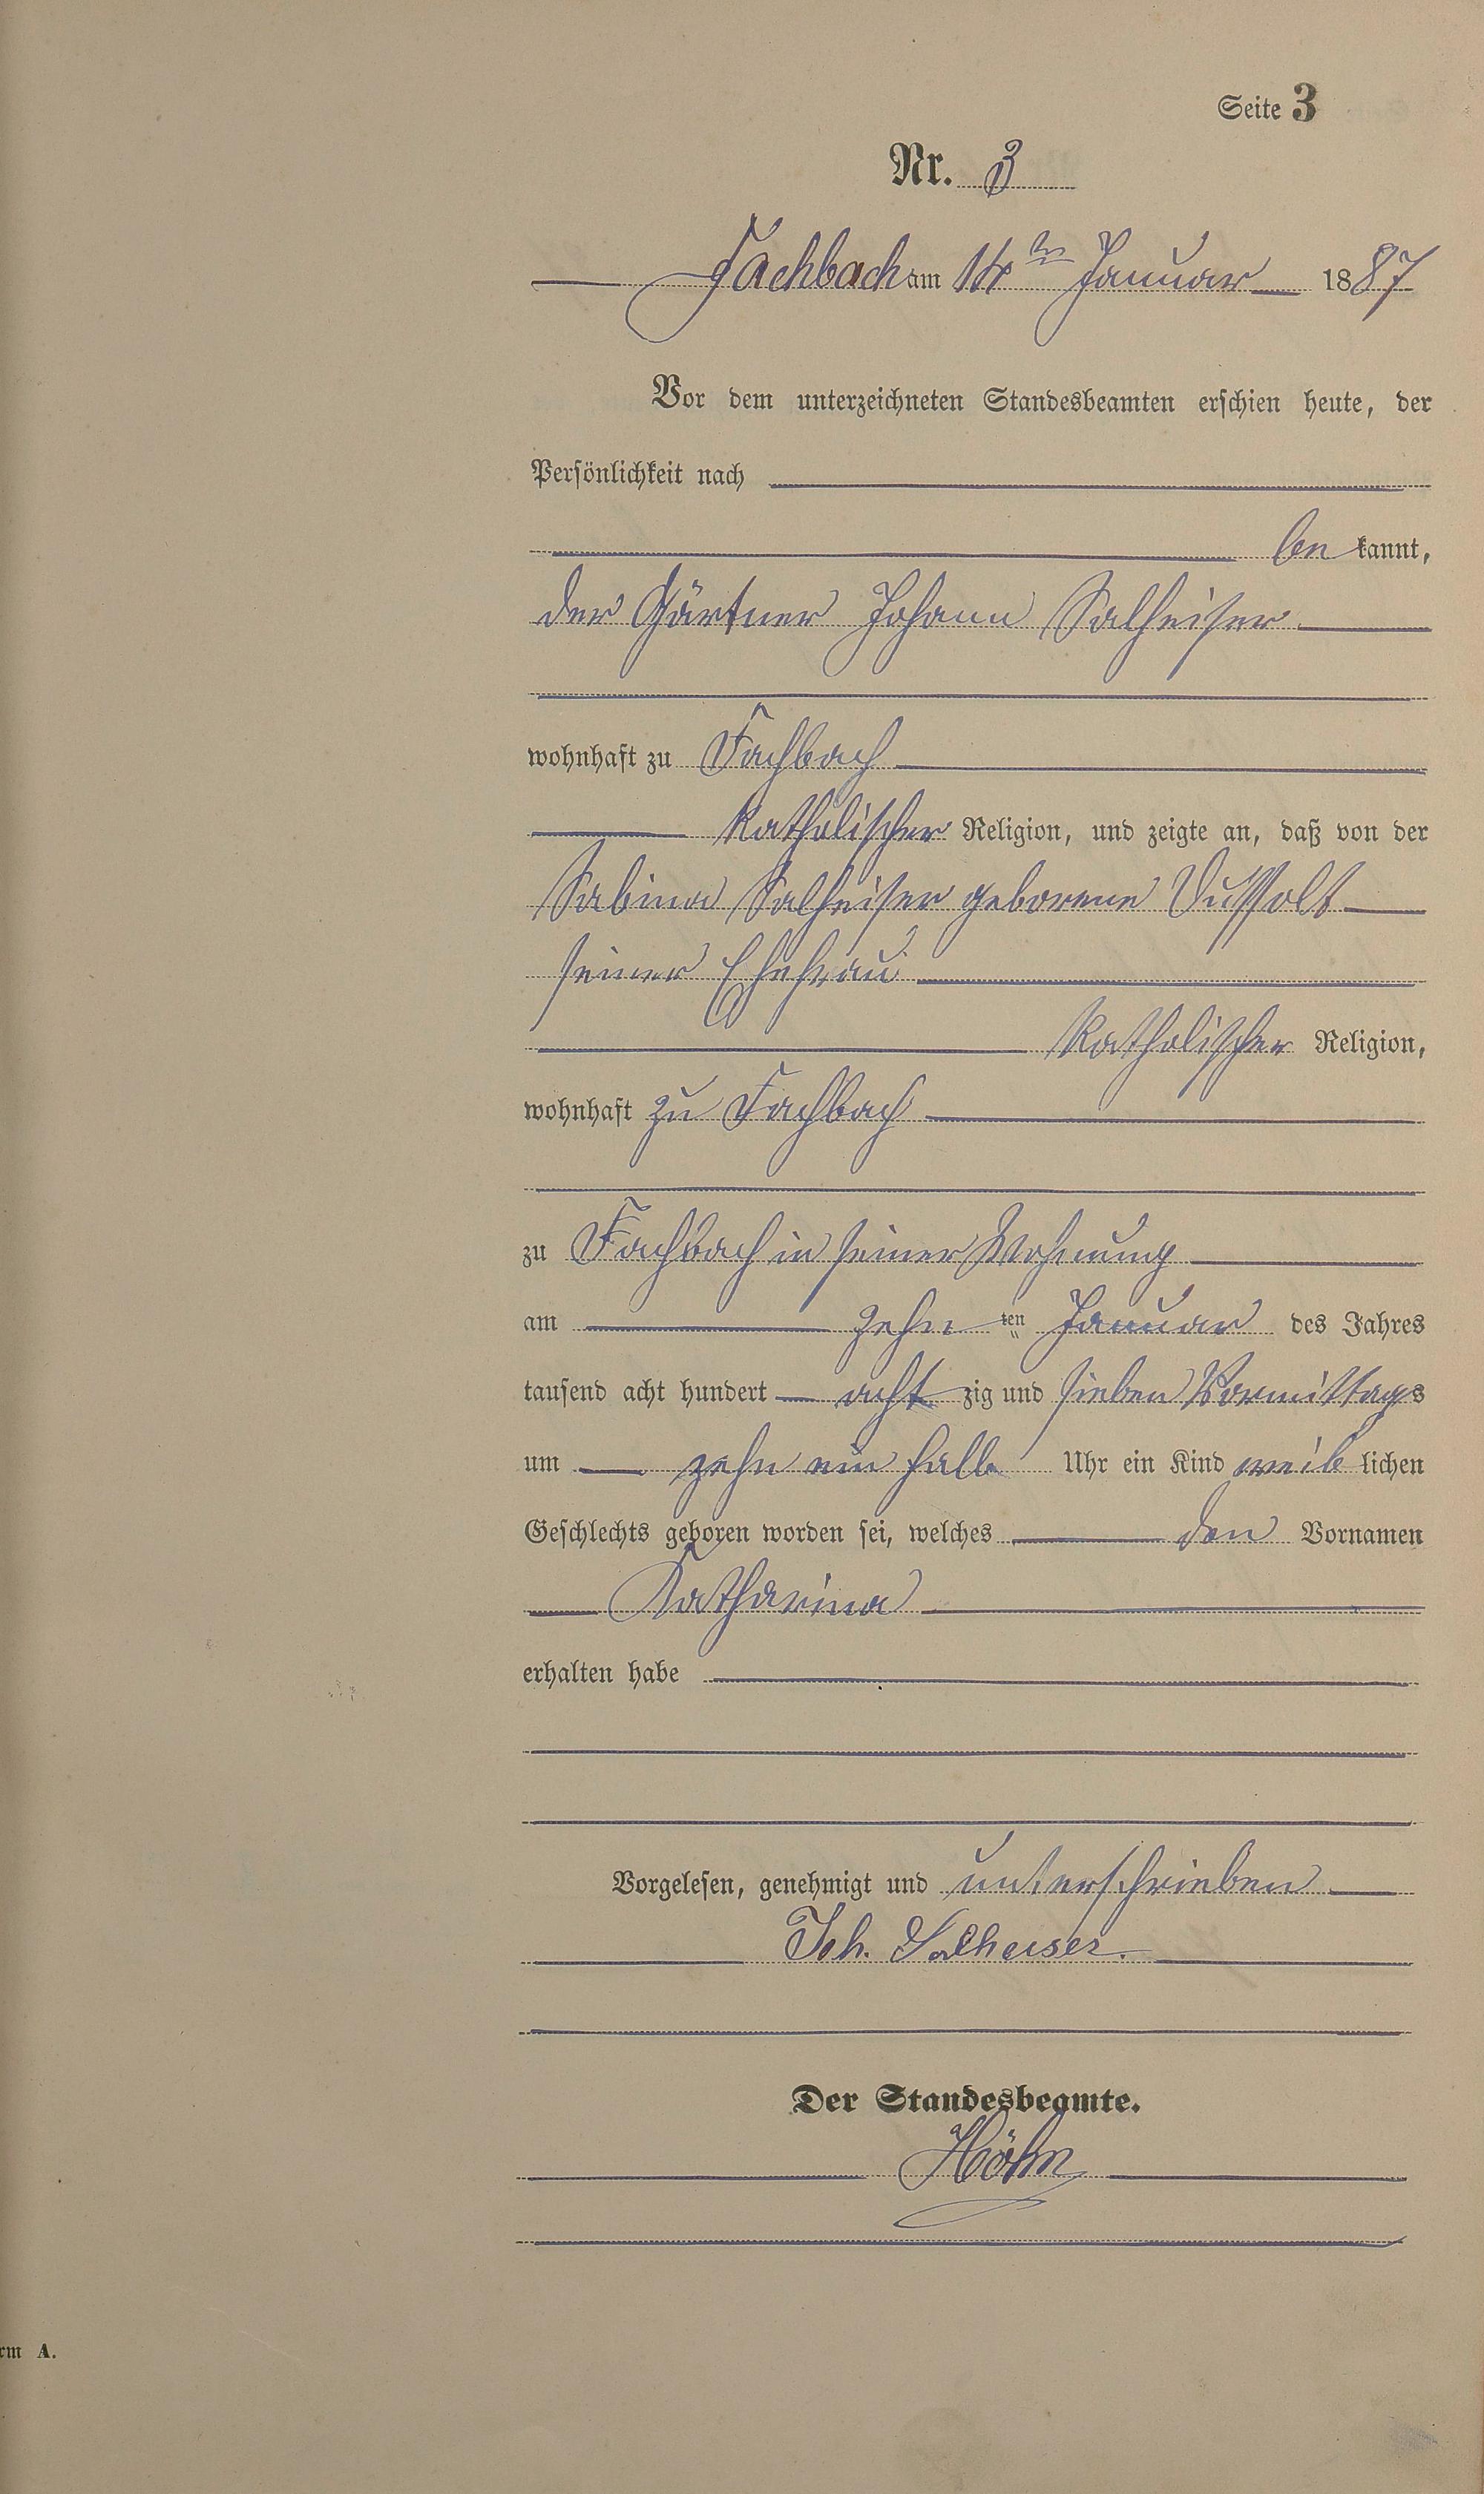 Seite 3
Nr. 3
Fachbach am 14ten Januar 1887
Vor dem unterzeichneten Standesbeamten erschien heute, der
Persönlichkeit nach
be kannt,
der Gärtner Johann Salheiser
wohnhaft zu Fachbach
katholischer Religion, und zeigte an, daß von der
Sabina Salheiser geborene
seiner Ehefrau
katholischer Religion,
wohnhaft zu Fachbach
zu Fachbach in seiner Wohnung
am zehn ten Januar des Jahres
tausend acht hundert acht zig und sieben Vormittags
um zehn ein halb Uhr ein Kind weib lichen
Geschlechts geboren worden sei, welches den Vornamen
Katharina
erhalten habe
Vorgelesen, genehmigt und unterschrieben
Joh. Salheiser.
Der Standesbeamte.
Höhn
rm A.